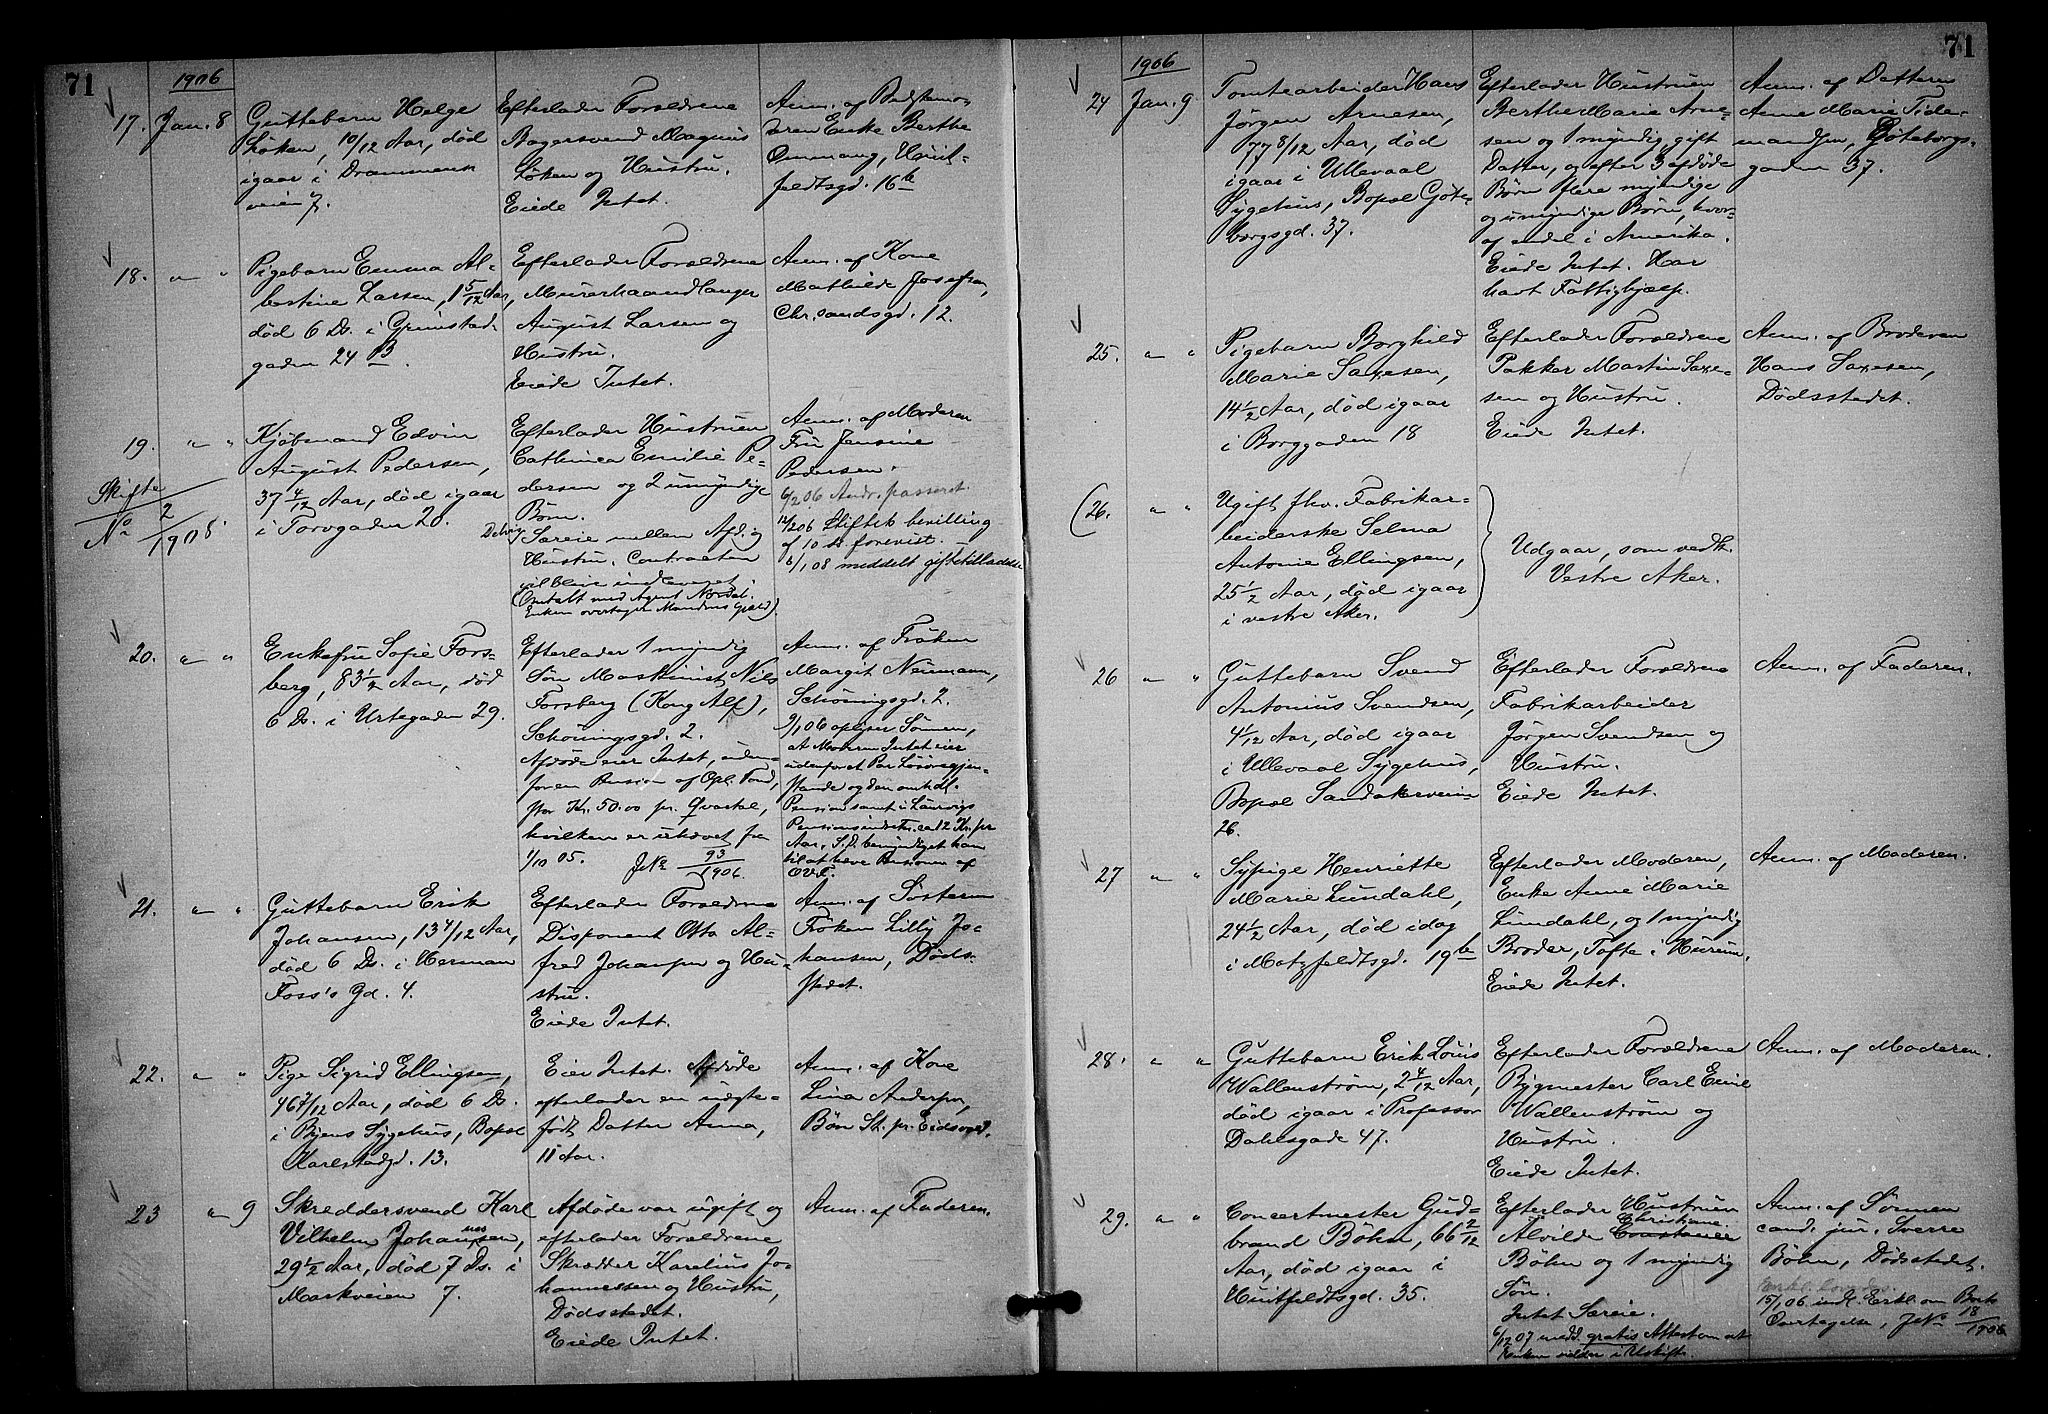 71
1906
17. Jan. 8
Guttebarn Helge
Løken, 10/12 Aar, død
igaar i Drammens
veien 7.
Efterlader Forældrene
Bagersvend Magnus
Løken og Hustru.
Eiede Intet.
Anm. af Bedstemo-
deren Enke Berthe
Ommang, Huit-
feldtsgd. 16 b
18. " "
Pigebarn Emma Al-
bertine Larsen, 1 5/12 Aar,
død 6 Ds. i Grimstad-
gaden 24 B.
Efterlader Forældrene
Murerhaandlanger
August Larsen og
Hustru.
Eiede Intet.
Anm. af Kone
Mathilde Josefsen,
Chr.sandsgd. 12.
19. " "
Skifte
No 2/1908
Kjøbmand Edvin
August Pedersen,
37 4/12 Aar, død igaar
i Torvgaden 20.
Efterlader Hustruen
Cathinca Emilie Pe-
dersen og 2 umyndige
Børn.
Delvis Særeie mellem Afd. og
Hustru. Contracten
vil blive indleveret.
(Omtalt med Agent Nordal.
Enken overtager Mandens Gjæld).
Anm. af Moderen
Fru Jensine
Pedersen.
6/2 06 Andr. passeret.
14/2 06 Skiftets bevilling
af 10 ds. forevist.
6/1 08 meddelt giftetilladelse
20. " "
Enkefru Sofie Fors-
berg, 83 1/2 Aar, død
6 Ds. i Urtegaden 29.
Efterlader 1 myndig
Søn Maskinist Nils
Forsberg (Kong Alf),
Schøningsgd. 2.
Afdøde eier Intet, uden-
for en Pension af Opl. Fond,
stor Kr. 50.00 pr. Qvartal,
hvilken er uhævet fra
1/10 05. J No 93/1906.
Anm. af Frøken
Margit Neumann,
Schøningsgd. 2.
9/1 06 oplyser Sønnen,
at Moderen Intet eier
udenfor et Par Løsøregjen-
stande og den omhdl.
Pension samt i Laurvigs
Pensionsindretn. ca 12 Kr. pr
Aar. S.f. bemyndiget ham
til at hæve Pensionen af
Ovf.
21. " "
Guttebarn Erik
Johansen, 13 4/12 Aar,
død 6 Ds. i Herman
Foss's Gd. 4.
Efterlader Forældrene
Disponent Otto Al-
fred Johansen og Hu-
stru.
Eiede Intet.
Anm. af Søsteren
Frøken Lilly Jo-
hansen, Døds-
stedet.
22. " "
Pige Sigrid Ellingsen,
46 7/12 Aar, død 6 Ds.
i Byens Sygehus, Bopæl
Karlstadgd. 13.
Eier Intet. Afdøde
efterlader en uægte-
født Datter Anna,
11 Aar.
Anm. af Kone
Lina Andersen,
Bøn St. pr. Eidsvold.
23 " 9
Skreddersvend Karl
Vilhelm Johannessen,
29 1/2 Aar, død 7 Ds. i
Markveien 7.
Afdøde var ugift og
efterlader Forældrene
Skrædder Karelius Jo-
hannessen og Hustru,
Dødsstedet.
Eiede Intet.
Anm. af Faderen.
71
1906
24 Jan. 9.
Tomtearbeider Hans
Jørgen Arnesen,
77 8/12 Aar, død
igaar i Ullevaal
Sygehus, Bopæl Göte-
borgsgd. 37.
Efterlader Hustruen
Berthe Marie Arne-
sen og 1 myndig gift
Datter, og efter 3 afdøde
Børn flere myndige
og umyndige Børn, hvor-
af endel i Amerika.
Eiede Intet. Har
havt Fattighjælp.
Anm. af Datteren
Anne Marie Tide-
mandsen, Göteborgs-
gaden 37.
25. " "
Pigebarn Borghild
Marie Saxesen,
14 1/2 Aar, død igaar
i Borggaden 18
Efterlader Forældrene
Pakker Martin Saxe-
sen og Hustru.
Eiede Intet.
Anm. af Broderen
Hans Saxesen,
Dødsstedet.
(26. " "
Ugift fhv. Fabrikar-
beiderske Selma
Antonie Ellingsen,
25 1/2 Aar, død igaar
i vestre Aker.
Udgaar, som vedk.
Vestre Aker.
26 " "
Guttebarn Svend
Antonius Svendsen,
4/12 Aar, død igaar
i Ullevaal Sygehus,
Bopæl Sandakerveien
26.
Efterlader Forældrene
Fabrikarbeider
Jørgen Svendsen og
Hustru.
Eiede Intet.
Anm. af Faderen.
27 " "
Sypige Henriette
Marie Lundahl,
24 1/2 Aar, død idag
i Motzfeldtsgd. 19 b
Efterlader Moderen,
Enke Anne Marie
Lundahl, og 1 myndig
Broder, Tofte i Hurum.
Eiede Intet.
Anm. af Moderen.
28. " "
Guttebarn Erik Louis
Wallenstrøm, 2 4/12 Aar,
død igaar i Professor
Dahlsgade 47.
Efterlader Forældrene
Bygmester Carl Emil
Wallenstrøm og
Hustru.
Eiede Intet.
Anm. af Moderen.
29. " "
Concertmester Gud-
brand Bøhn, 66 2/12
Aar, død igaar i
Huitfeldtsgd. 35.
Efterlader Hustruen
Christiane
Alvilde Constance
Bøhn og 1 myndig
Søn.
Intet Særeie.
6/12 07 medd. gratis Attest om at
Enken sidder i Uskift.
Anm. af Sønnen
cand. jur. Sverre
Bøhn, Dødsstedet.
15/1 06 indk. Erkl. om Boets
Overtagelse, J No 18/1906